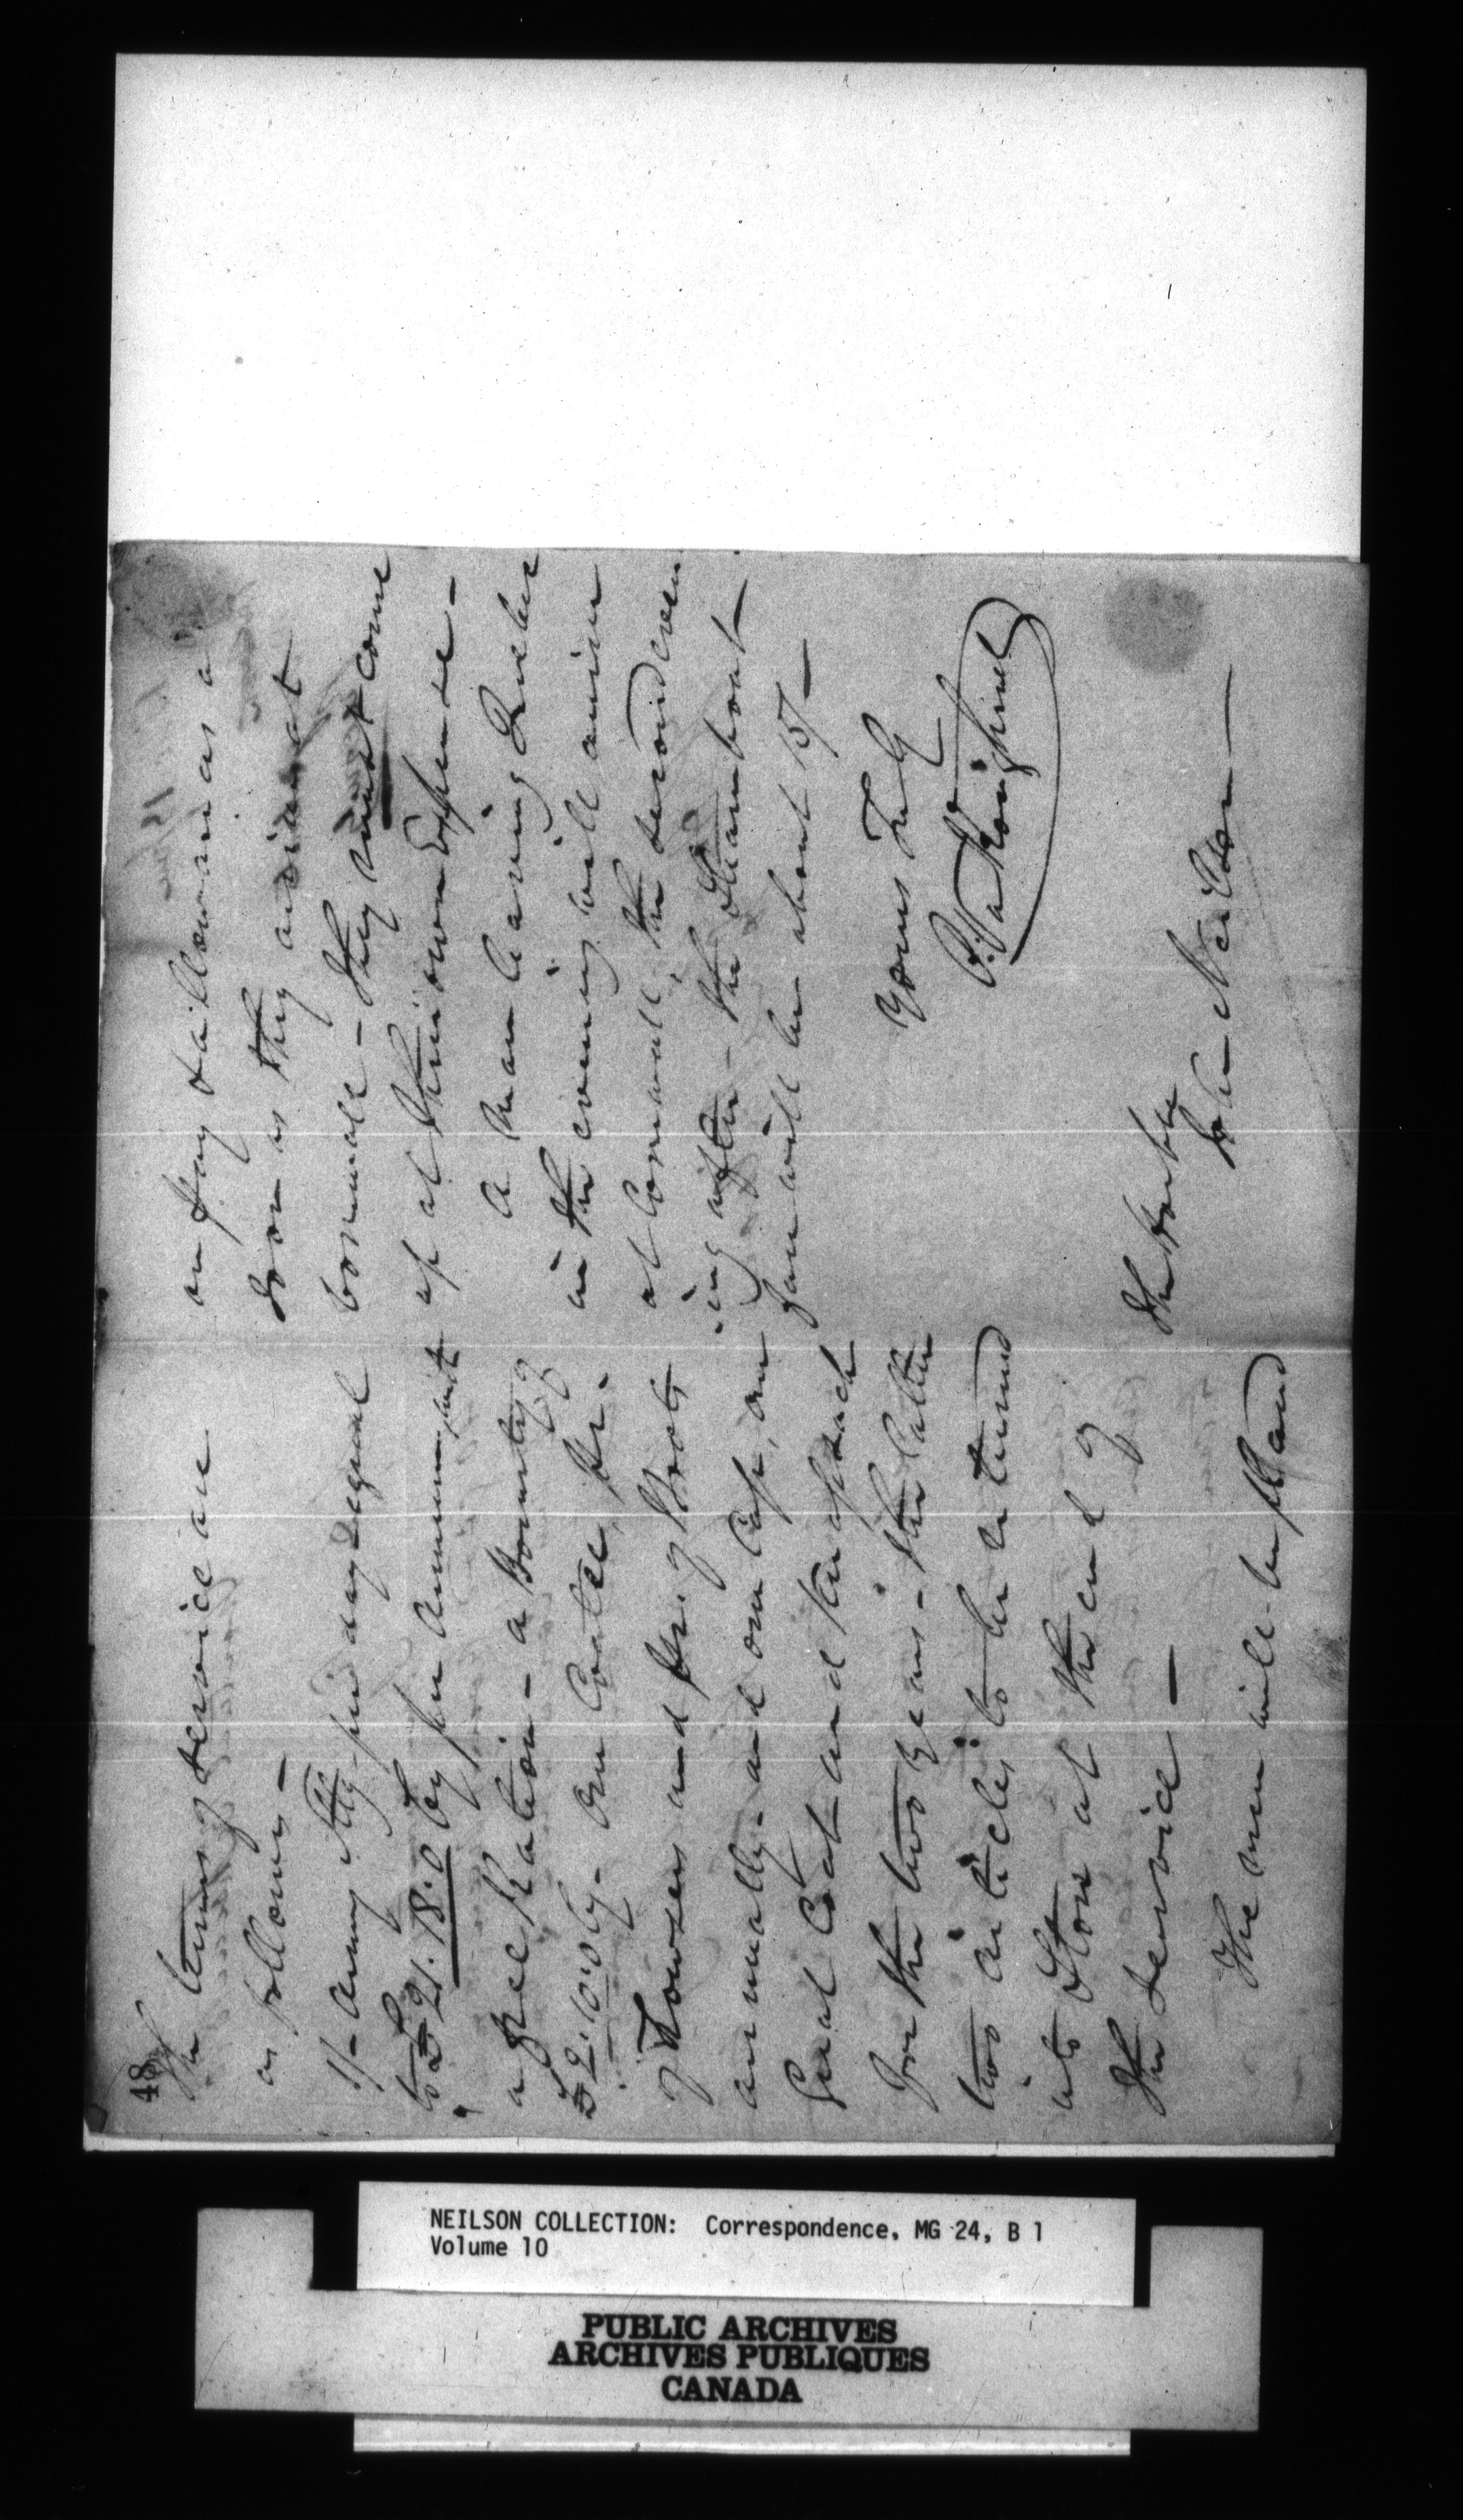 48
The terms of service are
as follows —
1/- Army Stg. per day equal
to £21.18.0 Cy per Annum with
a free Ration - a Bounty of
£2.10.0 Cy - One Coatee, pr.
of Trowsers and pr. of Boots
annually - and one Cap, one
Great Coat and Knapsack
for the two years - the latter
two articles to be returned
into Store at the end of
the service —
The men will be placed
on pay & allowances as
soon as they arrive at
Cornwall - they must come
up at their own Expense -
A man leaving Quebec
in the evening will arrive
at Cornwall, the second even
-ing after - the Steamboat
fare will be about 15/-
Yours Truly
P. VanKoughnet
The Honble
John Neilson —
NEILSON COLLECTION: Correspondence, MG 24, B 1
Volume 10
PUBLIC ARCHIVES
ARCHIVES PUBLIQUES
CANADA